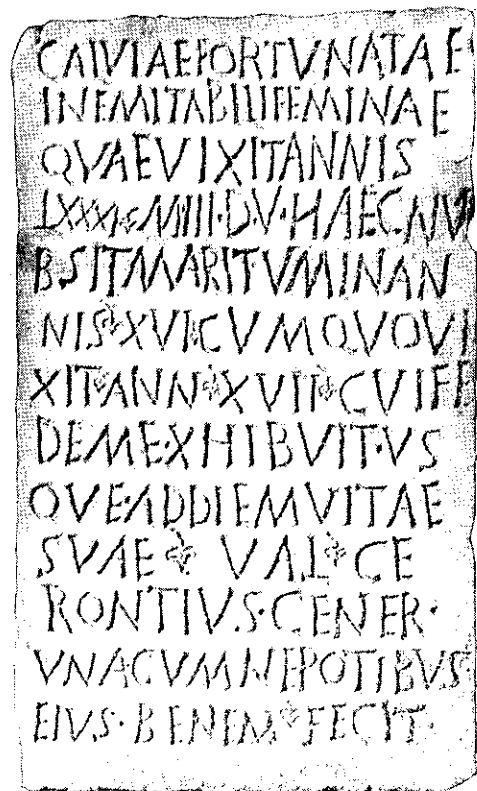 CALVIAEFORTVNATAE
INEMITABILIFEMINAE
QVAEVIXITANNIS
LXXXI❧MIIII·D·V·HAECNV
BSITMARITVMINAN
NIS❧XVI❧CVMQVOVI
XIT❧ANN❧XVII❧CVIFE
DEMEXHIBVIT·VS
QVE·ADDIEMVITAE
SVAE❧VAL❧CE
RONTIVS·GENER·
VNACVMNEPOTIBVS
EIVS·BENEM❧FECIT·